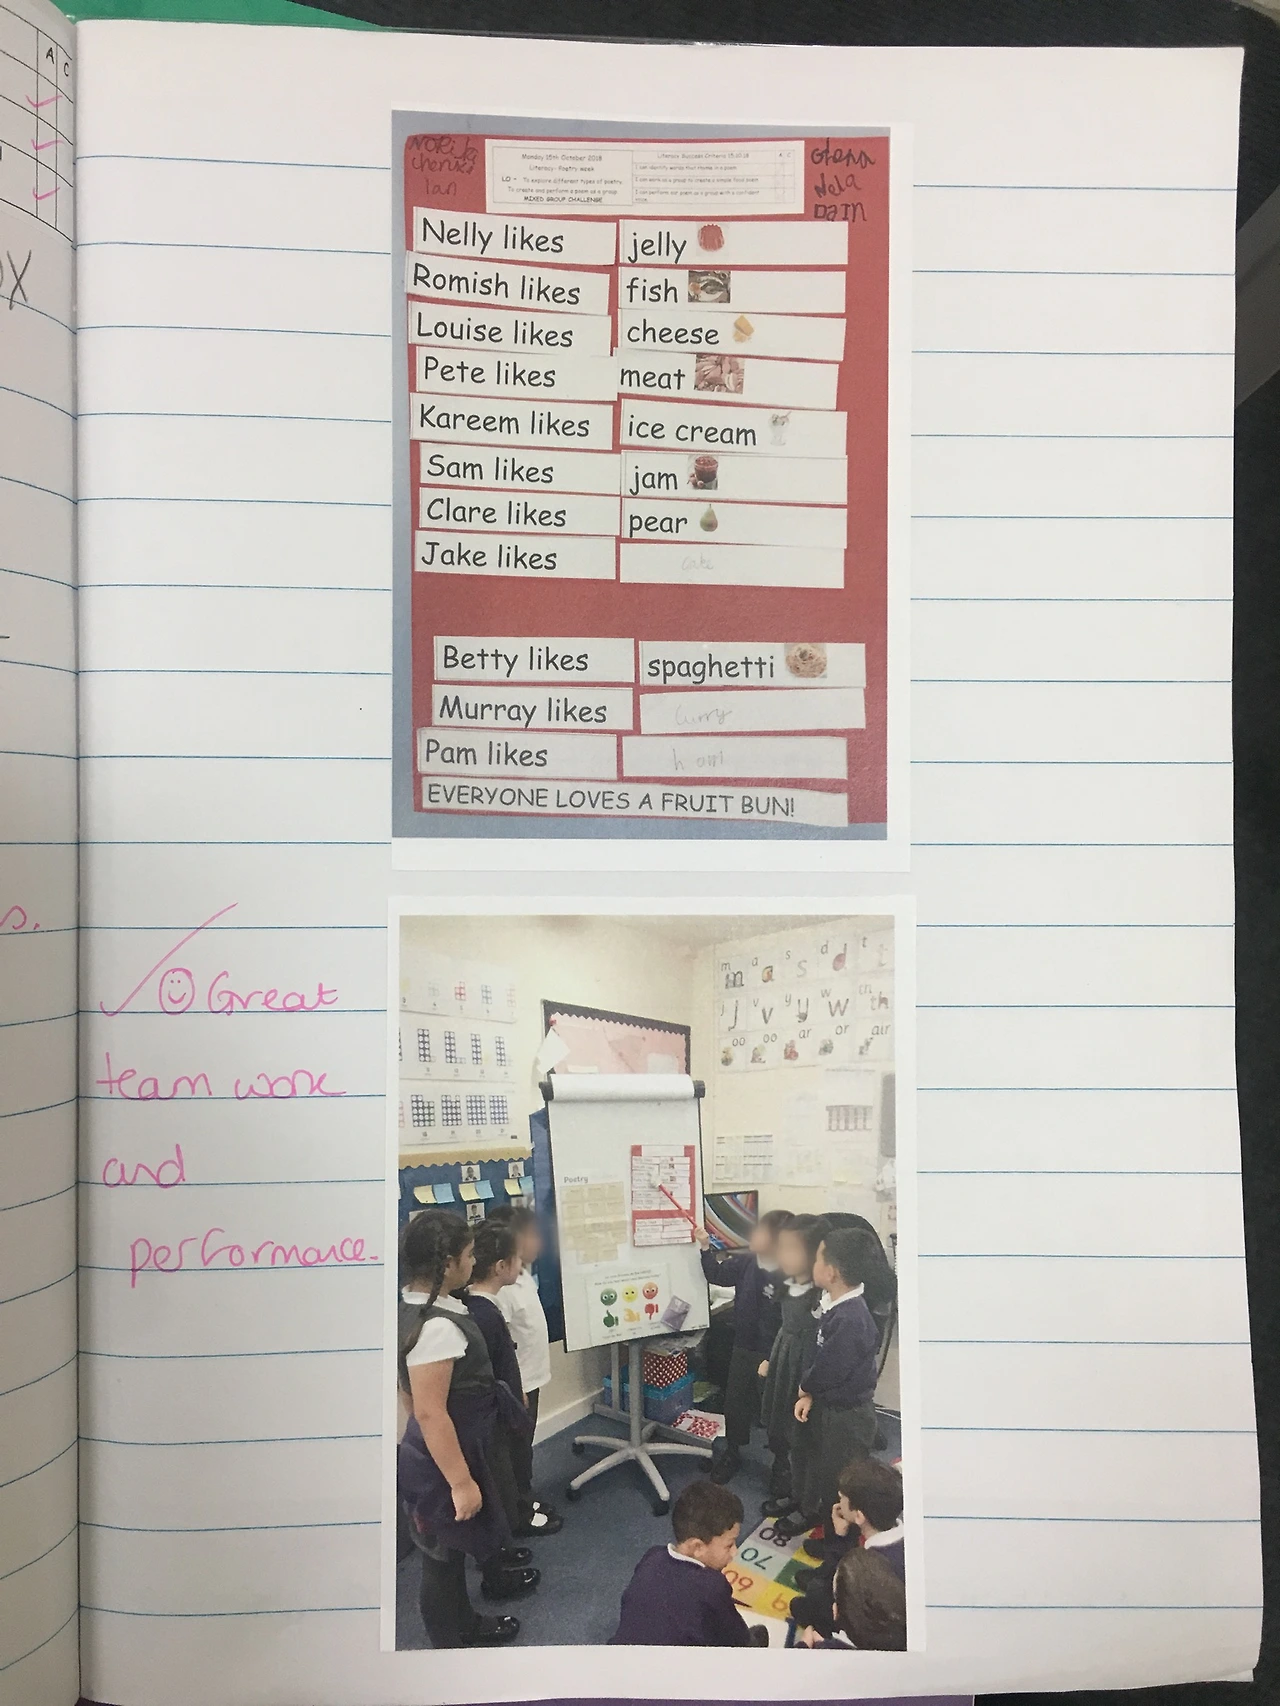 A C
s.
Monday 15th October 2018
Literacy- Poetry week
LO - To explore different types of poetry
To create and perform a poem as a group
MIXED GROUP CHALLENGE
Literacy Success Criteria 15.10.18 A C
I can identify words that rhyme in a poem
I can work as a group to create a simple food poem
I can perform our poem as a group with a confident voice
Nelly likes jelly
Romish likes fish
Louise likes cheese
Pete likes meat
Kareem likes ice cream
Sam likes jam
Clare likes pear
Jake likes cake
Betty likes spaghetti
Murray likes curry
Pam likes ham
EVERYONE LOVES A FRUIT BUN!
Great
team work
and
performance.
Poetry
m a s d t
j v y w th
oo oo ar or air
80
70
60